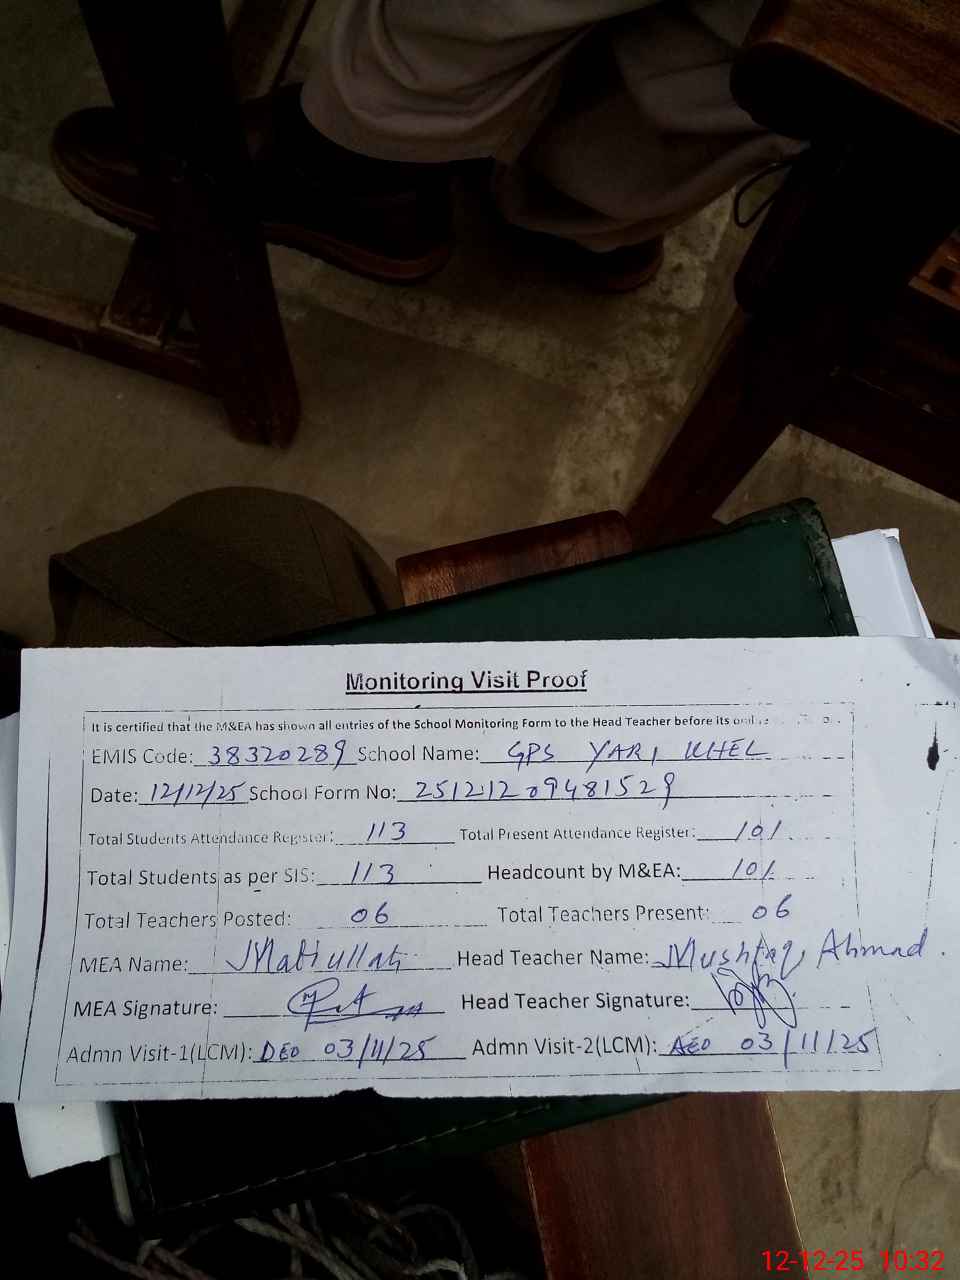 Monitoring Visit Proof
It is certified that the M&EA has shown all entries of the School Monitoring Form to the Head Teacher before its
EMIS Code: 38320289 School Name: GPS YARI KHEL
Date: 12/12/25 School Form No: 25121209481529
Total Students Attendance Register: 113 Total Present Attendance Register: 101
Total Students as per SIS: 113 Headcount by M&EA: 101
Total Teachers Posted: 06 Total Teachers Present: 06
MEA Name: Matiullah Head Teacher Name: Mushtaq Ahmad.
MEA Signature: Head Teacher Signature:
Admn Visit-1(LCM): DEO 03/11/25 Admn Visit-2(LCM): AEO 03/11/25
12-12-25 10:32